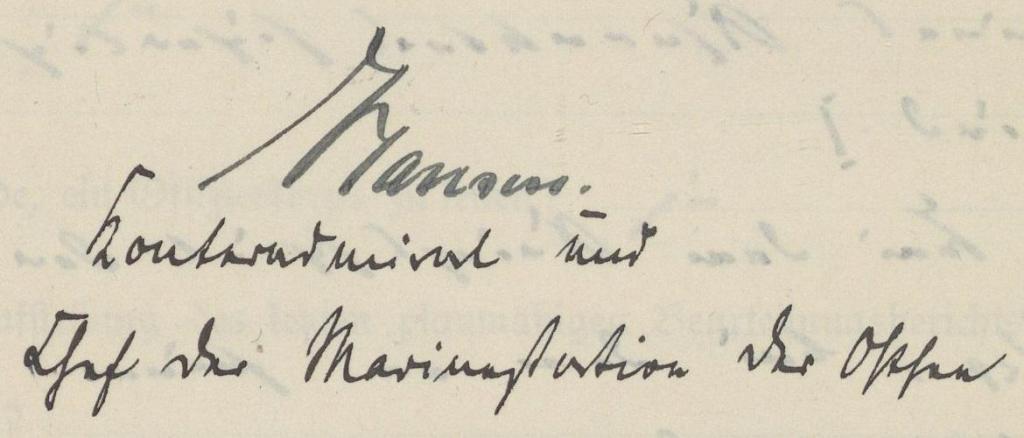 Hansen.
Konteradmiral und
Chef der Marinestation der Ostsee